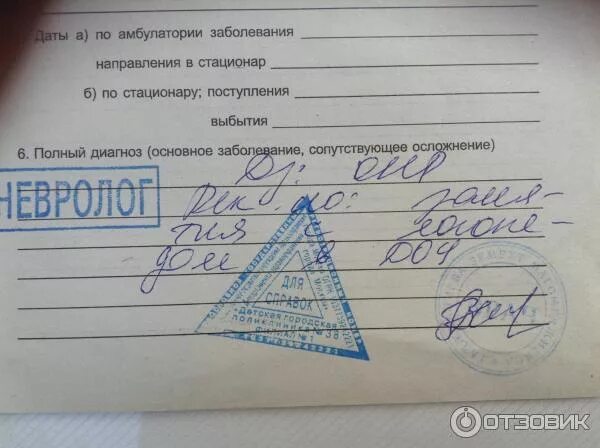 Даты а) по амбулатории заболевания
направления в стационар
б) по стационару; поступления
выбытия
6. Полный диагноз (основное заболевание, сопутствующее осложнение)
НЕВРОЛОГ
Dz: ОНР
Рек-но: заня-
тия с логопе-
дом в ДОУ
ДЛЯ
СПРАВОК
Детская городская
поликлиника № 38
ФИЛИАЛ № 1
ОТЗОВИК